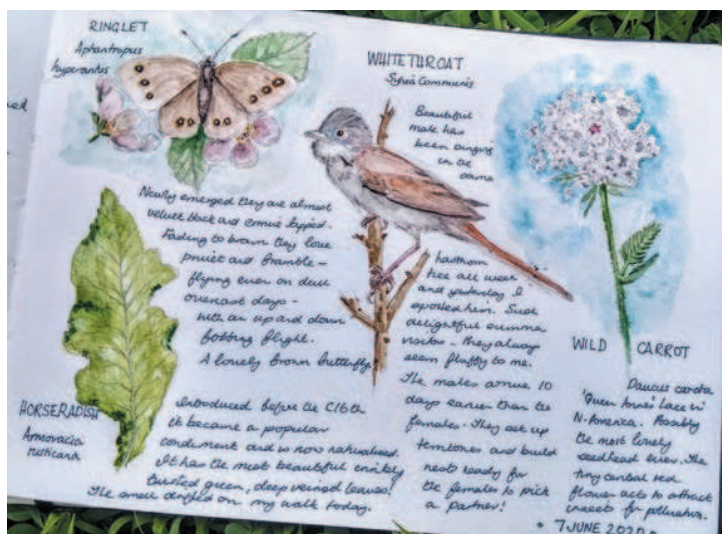 RINGLET
Aphantopus
hyperantus
Newly emerged they are almost
velvet black and ermine tipped.
Fading to brown they love
privet and bramble –
flying even on dull
overcast days –
with an up and down
bobbing flight.
A lovely brown butterfly
WHITETHROAT
Sylvia Communis
Beautiful
male has
been singing
in the
same
hawthorn
tree all week
and yesterday I
spotted him. Such
delightful summer
visitors – they always
seem fluffy to me.
The males arrive 10
days earlier than the
females. They set up
territories and build
nests ready for
the females to pick
a partner!
WILD CARROT
Daucus carota
'Queen Anne's Lace' in
N. America. Possibly
the most lovely
seedhead ever. The
tiny central red
flower acts to attract
insects for pollination.
HORSERADISH
Armoracia
rusticana
Introduced before the C16th
it became a popular
condiment and is now naturalised.
It has the most beautiful crinkly
twisted green, deep veined leaves!
The smell drifted on my walk today.
• 7 JUNE 2020 •